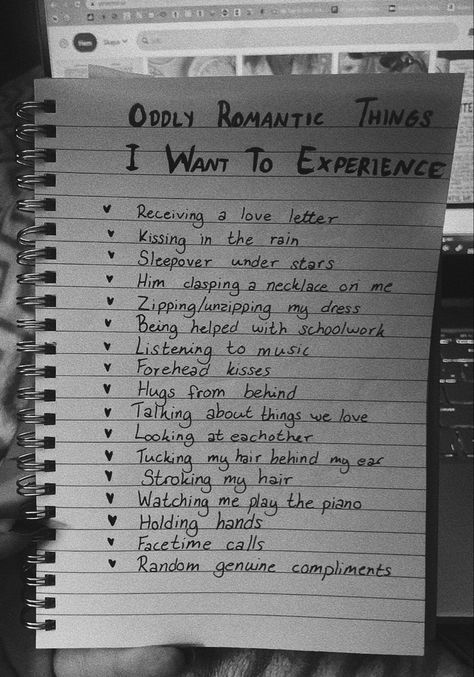 ODDLY ROMANTIC THINGS
I WANT TO EXPERIENCE
♥ Receiving a love letter
♥ Kissing in the rain
♥ Sleepover under stars
♥ Him clasping a necklace on me
♥ Zipping/unzipping my dress
♥ Being helped with schoolwork
♥ Listening to music
♥ Forehead kisses
♥ Hugs from behind
♥ Talking about things we love
♥ Looking at eachother
♥ Tucking my hair behind my ear
♥ Stroking my hair
♥ Watching me play the piano
♥ Holding hands
♥ Facetime calls
♥ Random genuine compliments